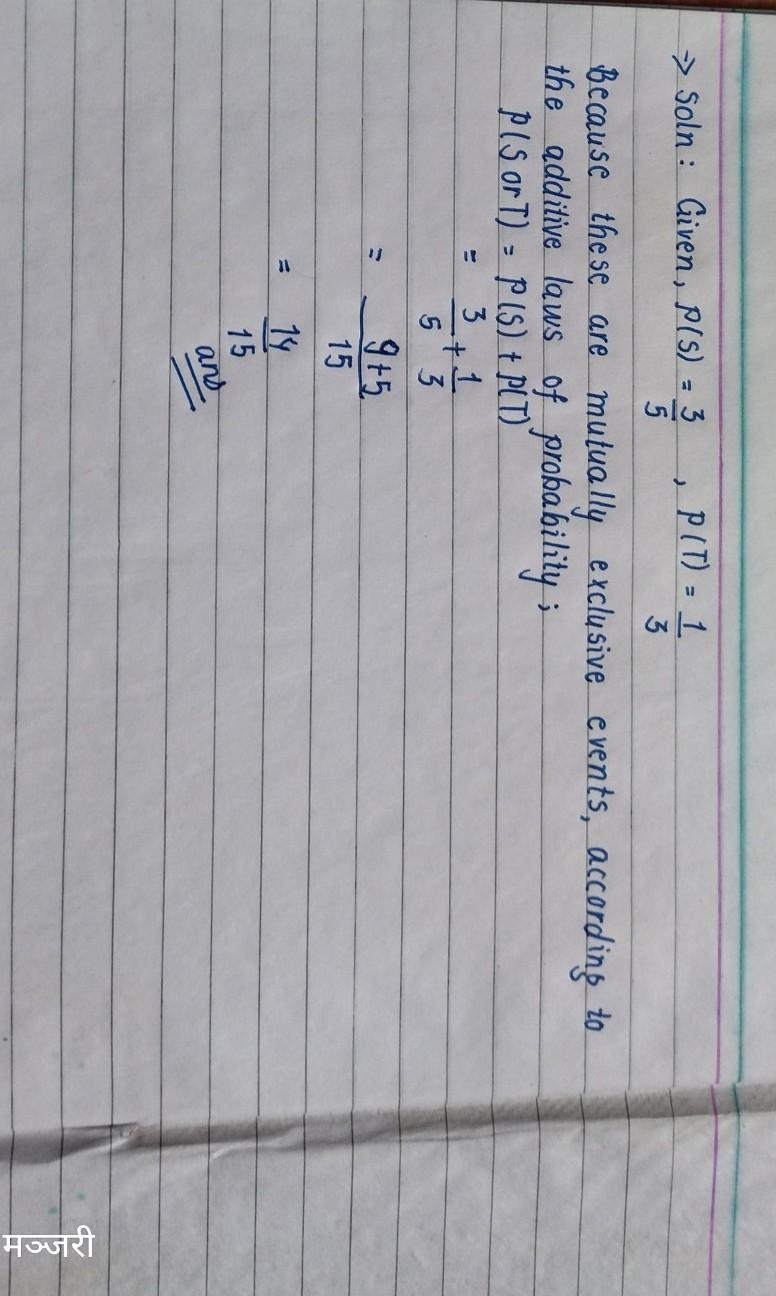 → Soln: Given, P(S) = 3/5 , P(T) = 1/3
Because these are mutually exclusive events, according to
the additive laws of probability;
P(S or T) = P(S) + P(T)
= 3/5 + 1/3
= 9+5/15
= 14/15
ans
मञ्जरी